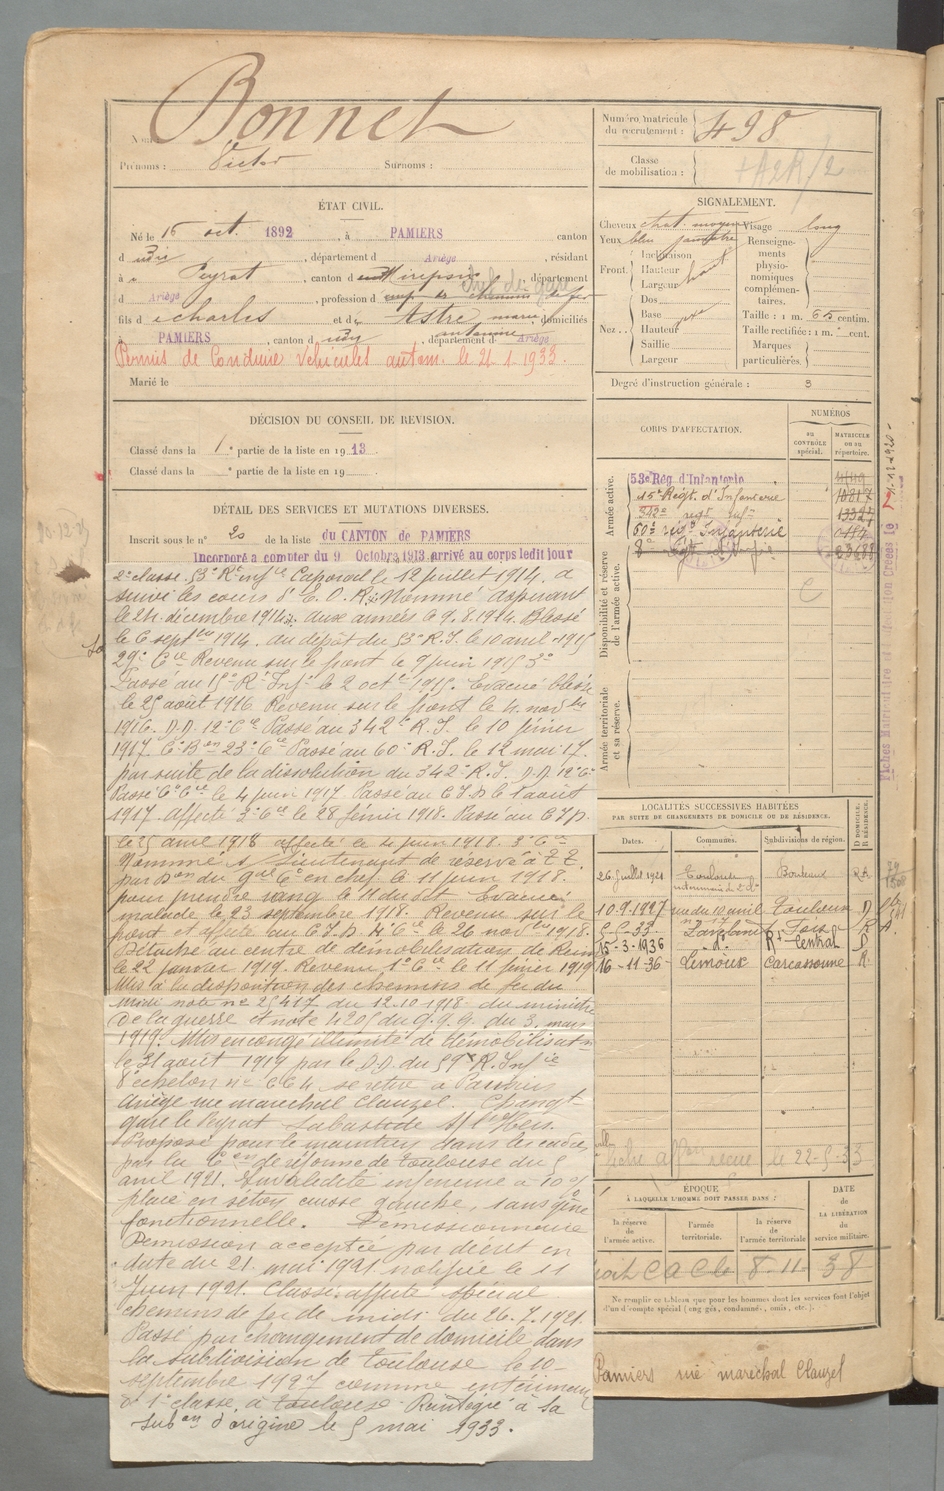 Bonnet
Nom :
Prénoms : Victor Surnoms :
Numéro matricule
du recrutement : 498
Classe
de mobilisation :
ÉTAT CIVIL.
Né le 15 oct. 1892, à PAMIERS canton
d , département d Ariège, résidant
à Peyrat, canton d Mirepoix, département
chef de gare
d Ariège, profession d
fils d Charles et d Astre marie domiciliés
à PAMIERS, canton d , département d Ariège
Permis de Conduire Véhicules autom. le 21.1.1933.
Marié le
SIGNALEMENT.
Cheveux chat. moyen Visage long
Yeux bleu
Renseigne-
ments
physio-
nomiques
complémen-
taires.
Front.
Inclinaison
Hauteur haut
Largeur
Nez.
Dos
Base
Hauteur
Saillie
Largeur
Taille : 1 m. 65 centim.
Taille rectifiée : 1 m. cent.
Marques
particulières.
Degré d'instruction générale : 3
DÉCISION DU CONSEIL DE REVISION.
Classé dans la 1e partie de la liste en 1913
Classé dans la e partie de la liste en 19
DÉTAIL DES SERVICES ET MUTATIONS DIVERSES.
Inscrit sous le n° 20 de la liste du CANTON de PAMIERS
Incorporé à compter du 9 Octobre 1913 arrivé au corps ledit jour
2e classe. 53e R. Infie Caporal le 12 juillet 1914. a
suivi les cours d'E.O.R. Nommé aspirant
le 24 décembre 1914. aux armées le 9.8.1914. Blessé
le 6 septbre 1914. au dépôt du 53e R.I. le 10 avril 1915
29e Cie Revenu sur le front le 9 juin 1915
Passé au 15e R. Infie le 2 octbre 1915. Evacué blessé
le 25 août 1916. Revenu sur le front le 4 novbre
1916. D.D. 12e Cie Passé au 342e R.I. le 10 février
1917. 23e Cie Passé au 60e R.I. le 12 mai 17.
par suite de la dissolution du 342e R.I. D.D. 12e Cie
Passé 6e Cie le 4 juin 1917. Passé au C.I.D. le 1 août
1917. affecté 3e Cie le 28 février 1918. Passé au C.I.D.
le 25 avril 1918 affecté le 4 juin 1918. 3e Cie
Nommé s/ Lieutenant de réserve à T.T.
par Don du Gal Ct en chef. le 11 juin 1918.
pour prendre rang le 11 du dit Evacué
malade le 23 septembre 1918. Revenu sur le
front et affecté au C.I.D. 4e Cie le 26 novbre 1918.
Détaché au centre de démobilisation de Reims
le 22 janvier 1919. Revenu 1e Cie le 11 février 1919
Mis à la disposition des chemins de fer du
Midi note n° 25417 du 12.10.1918. du ministre
de la guerre et note 4205 du G.Q.G. du 3. mars
1919. Mis en congé illimité de démobilisation
le 31 août 1919 par le D.D. du 59e R. Infie
échelon n° 664 se retire à Pamiers
Ariège rue maréchal Clauzel. Changt
gare le Peyrat Labastide s/ l'Hers.
Proposé pour le maintien dans les cadres
par la Con de réforme de Toulouse du 5
avril 1921. Invalidité inférieure à 10%
plaie en séton cuisse gauche, sans gêne
fonctionnelle. Démissionnaire
Démission acceptée par décret en
date du 21. mai 1921. notifiée le 11
Juin 1921. Classé affecté spécial
chemins de fer de midi du 26.7.1921.
Passé par changement de domicile dans
la subdivision de Toulouse le 10
septembre 1927 comme intérimaire
de 1e classe, à Toulouse. Réintégré à sa
subon d'origine le 5 mai 1933.
CORPS D'AFFECTATION.
NUMÉROS
au
CONTRÔLE
spécial.
MATRICULE
ou au
répertoire.
Armée active.
53e Rég. d'Infanterie
15e Régt. d'Infanterie 10817
342e regt inf 13327
60e régt Infanterie
Disponibilité et réserve
de l'armée active.
Armée territoriale
et sa réserve.
LOCALITÉS SUCCESSIVES HABITÉES
PAR SUITE DE CHANGEMENTS DE DOMICILE OU DE RÉSIDENCE.
Dates. Communes. Subdivisions de région. D. DOMICILE. R. RÉSIDENCE.
26 Juillet 1921 Toulouse Bordeaux
10.9.1927 rue du 10 avril Toulouse D
5-5-33 Foix
15-3-1936 do Rt Central
16-11-36 Limoux Carcassonne R.
reçue le 22-5-33
ÉPOQUE
À LAQUELLE L'HOMME DOIT PASSER DANS :
la réserve
de
l'armée active.
l'armée
territoriale.
la réserve
de
l'armée territoriale
DATE
de
LA LIBÉRATION
du
service militaire.
8-11- 38
Ne remplir ce tableau que pour les hommes dont les services font l'objet
d'un décompte spécial (engagés, condamnés, omis, etc.).
Pamiers rue maréchal Clauzel